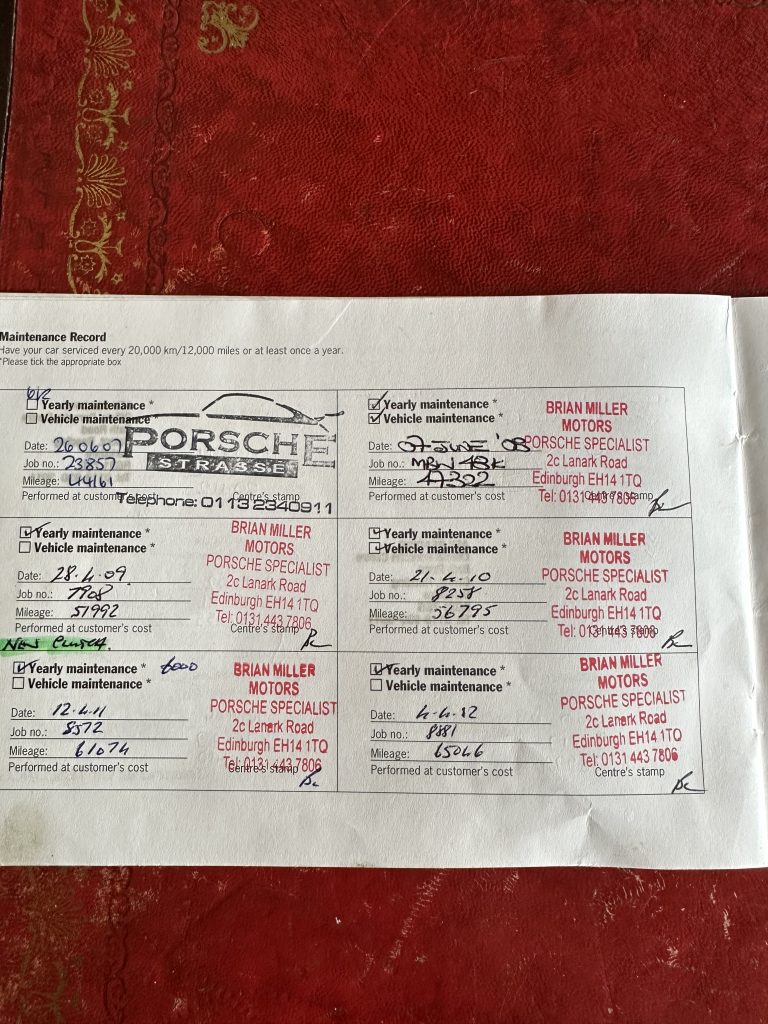 Maintenance Record
Have your car serviced every 20,000 km/12,000 miles or at least once a year.
*Please tick the appropriate box
Yearly maintenance *
Vehicle maintenance *
Date: 260607
Job no.: 23857
Mileage: 44161
Performed at customer's cost
Centre's stamp
PORSCHE
STRASSE
Telephone: 0113 2340911
Yearly maintenance *
Vehicle maintenance *
Date: 07 JUNE '08
Job no.: MBN 48K
Mileage: 47302
Performed at customer's cost
Centre's stamp
BRIAN MILLER
MOTORS
PORSCHE SPECIALIST
2c Lanark Road
Edinburgh EH14 1TQ
Tel: 0131 443 7806
Yearly maintenance *
Vehicle maintenance *
Date: 28.4.09
Job no.: 7908
Mileage: 51992
Performed at customer's cost
Centre's stamp
NEW CLUTCH.
BRIAN MILLER
MOTORS
PORSCHE SPECIALIST
2c Lanark Road
Edinburgh EH14 1TQ
Tel: 0131 443 7806
Yearly maintenance *
Vehicle maintenance *
Date: 21.4.10
Job no.: 8258
Mileage: 56795
Performed at customer's cost
Centre's stamp
BRIAN MILLER
MOTORS
PORSCHE SPECIALIST
2c Lanark Road
Edinburgh EH14 1TQ
Tel: 0131 443 7806
Yearly maintenance * 6000
Vehicle maintenance *
Date: 12.4.11
Job no.: 8572
Mileage: 61074
Performed at customer's cost
Centre's stamp
BRIAN MILLER
MOTORS
PORSCHE SPECIALIST
2c Lanark Road
Edinburgh EH14 1TQ
Tel: 0131 443 7806
Yearly maintenance *
Vehicle maintenance *
Date: 4.4.12
Job no.: 8881
Mileage: 65046
Performed at customer's cost
Centre's stamp
BRIAN MILLER
MOTORS
PORSCHE SPECIALIST
2c Lanark Road
Edinburgh EH14 1TQ
Tel: 0131 443 7806